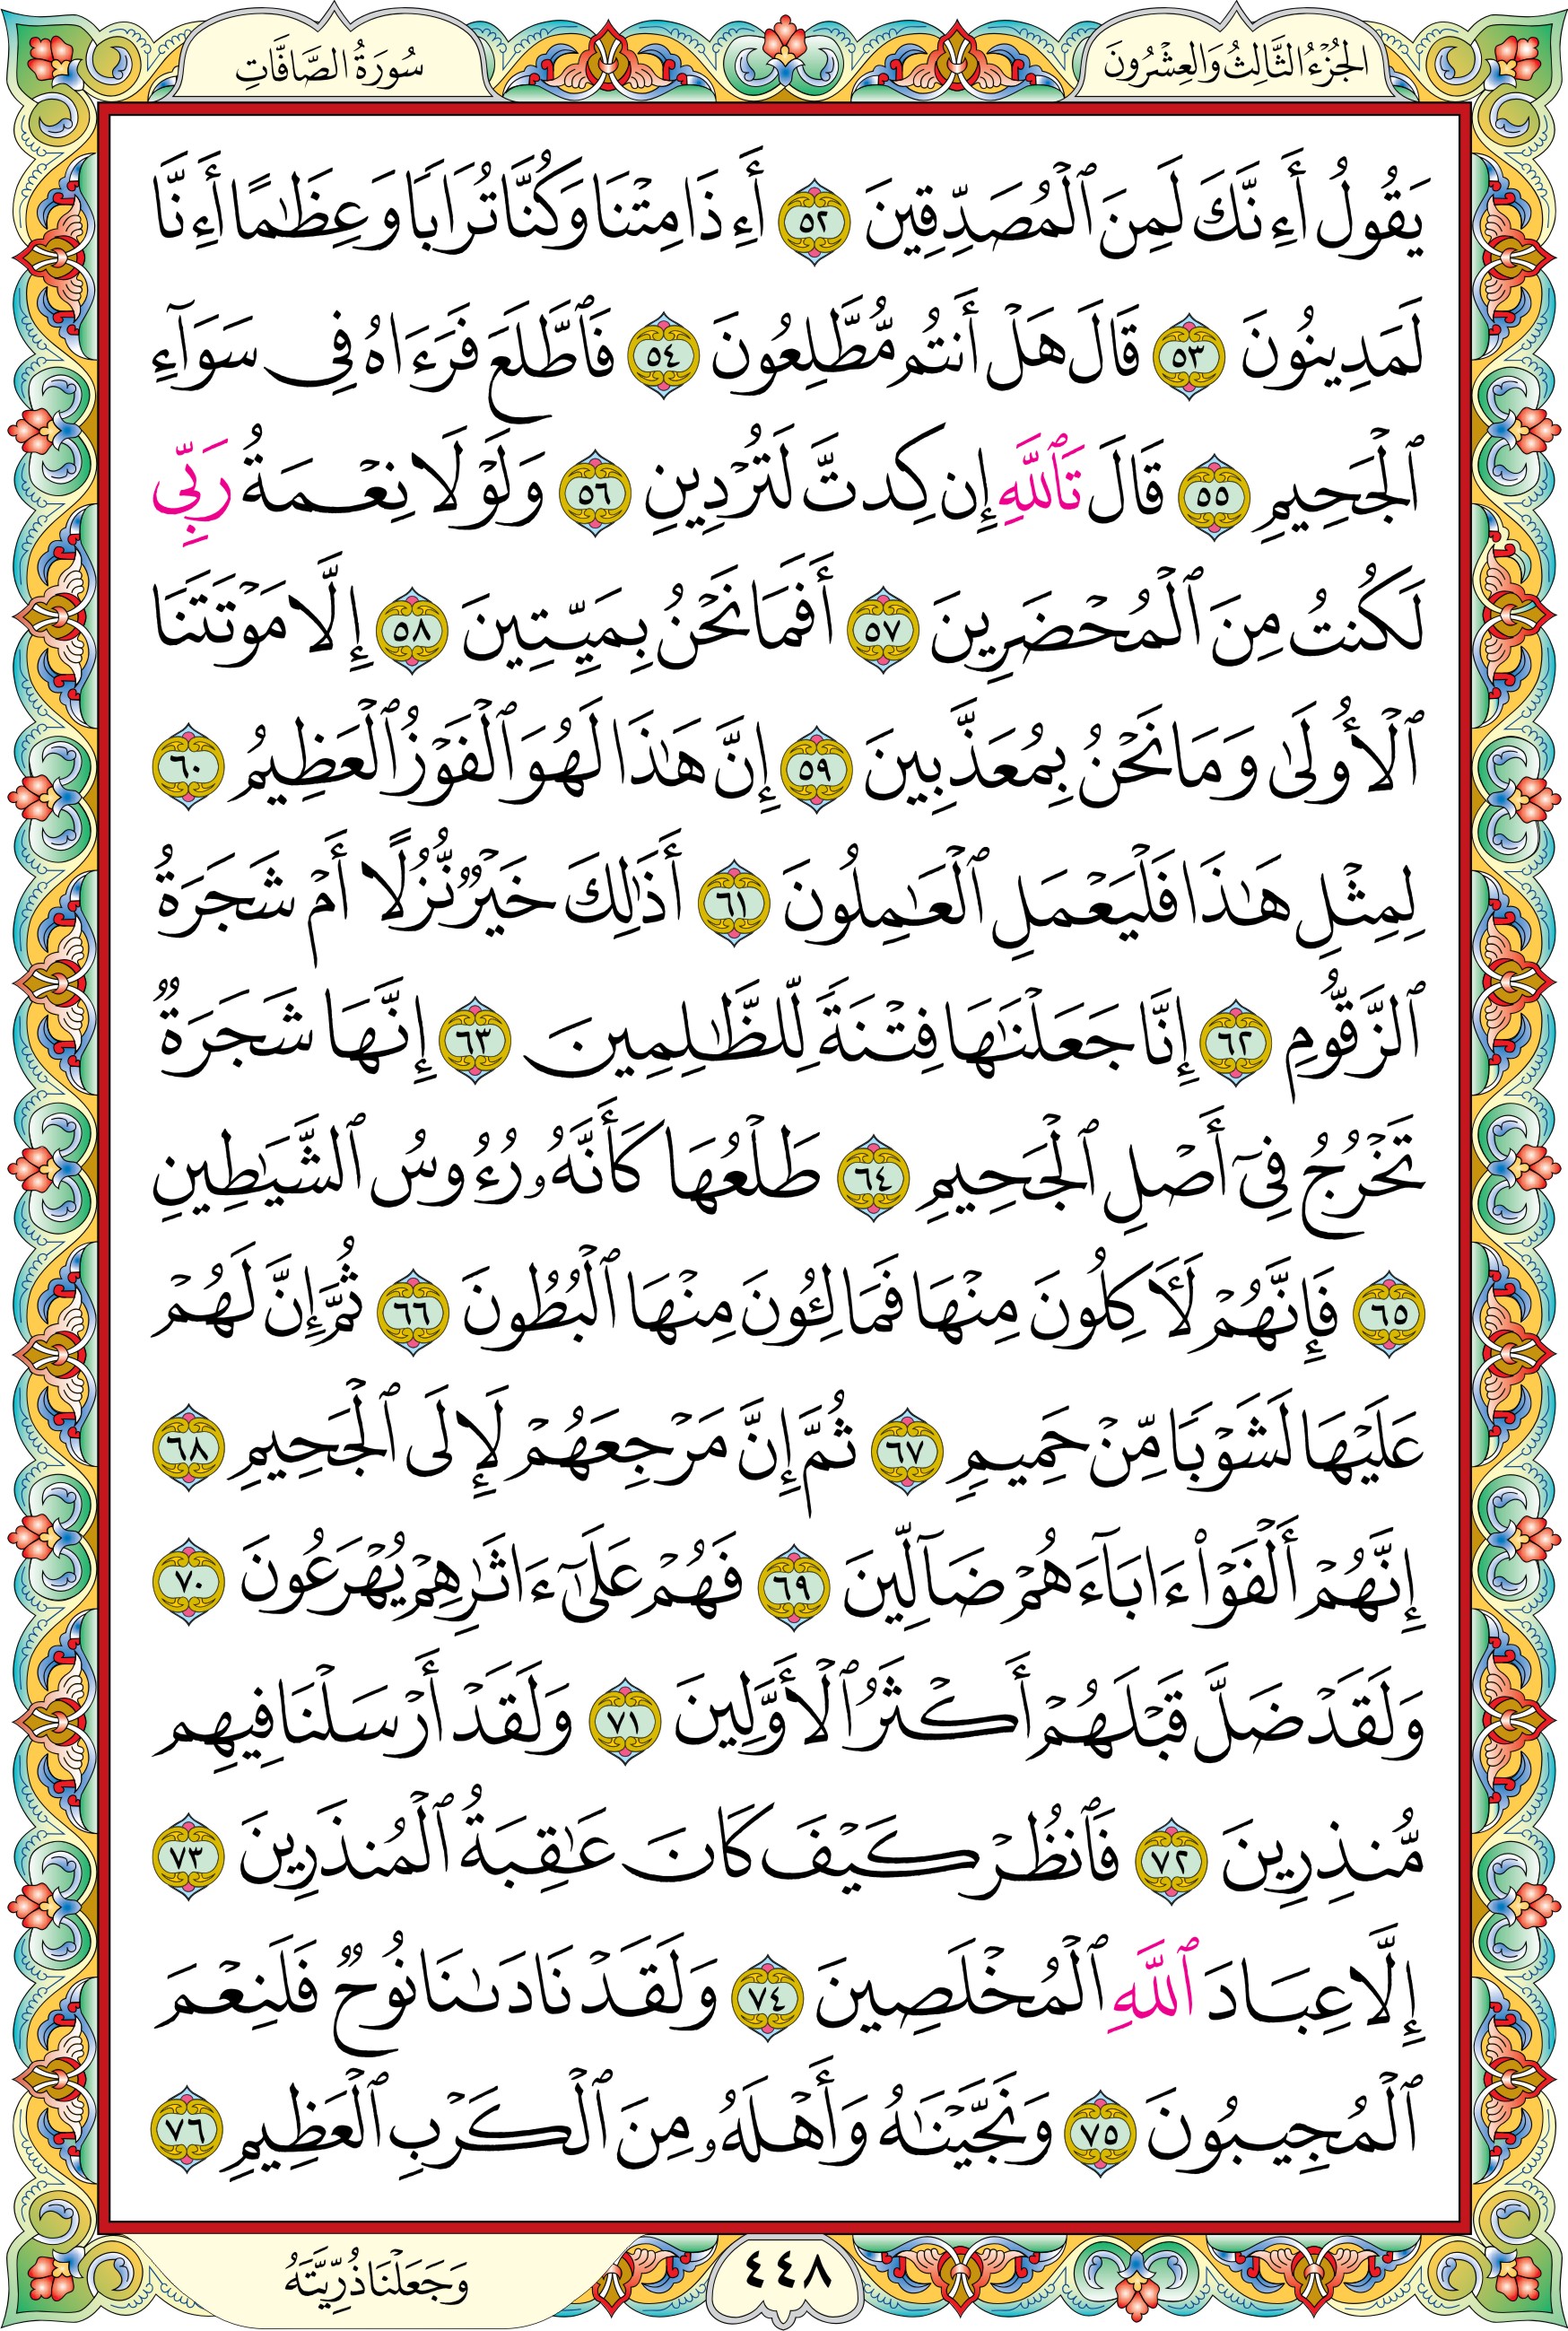 الجُزْءُ الثَّالِثُ وَالعِشْرُونَ
سُورَةُ الصَّافَّاتِ
يَقُولُ أَءِنَّكَ لَمِنَ ٱلْمُصَدِّقِينَ ٥٢ أَءِذَا مِتْنَا وَكُنَّا تُرَابًا وَعِظَٰمًا أَءِنَّا
لَمَدِينُونَ ٥٣ قَالَ هَلْ أَنتُم مُّطَّلِعُونَ ٥٤ فَٱطَّلَعَ فَرَءَاهُ فِى سَوَآءِ
ٱلْجَحِيمِ ٥٥ قَالَ تَٱللَّهِ إِن كِدتَّ لَتُرْدِينِ ٥٦ وَلَوْلَا نِعْمَةُ رَبِّى
لَكُنتُ مِنَ ٱلْمُحْضَرِينَ ٥٧ أَفَمَا نَحْنُ بِمَيِّتِينَ ٥٨ إِلَّا مَوْتَتَنَا
ٱلْأُولَىٰ وَمَا نَحْنُ بِمُعَذَّبِينَ ٥٩ إِنَّ هَٰذَا لَهُوَ ٱلْفَوْزُ ٱلْعَظِيمُ ٦٠
لِمِثْلِ هَٰذَا فَلْيَعْمَلِ ٱلْعَٰمِلُونَ ٦١ أَذَٰلِكَ خَيْرٌ نُّزُلًا أَمْ شَجَرَةُ
ٱلزَّقُّومِ ٦٢ إِنَّا جَعَلْنَٰهَا فِتْنَةً لِّلظَّٰلِمِينَ ٦٣ إِنَّهَا شَجَرَةٌ
تَخْرُجُ فِىٓ أَصْلِ ٱلْجَحِيمِ ٦٤ طَلْعُهَا كَأَنَّهُۥ رُءُوسُ ٱلشَّيَٰطِينِ
٦٥ فَإِنَّهُمْ لَءَاكِلُونَ مِنْهَا فَمَالِـُٔونَ مِنْهَا ٱلْبُطُونَ ٦٦ ثُمَّ إِنَّ لَهُمْ
عَلَيْهَا لَشَوْبًا مِّنْ حَمِيمٍ ٦٧ ثُمَّ إِنَّ مَرْجِعَهُمْ لَإِلَى ٱلْجَحِيمِ ٦٨
إِنَّهُمْ أَلْفَوْا۟ ءَابَآءَهُمْ ضَآلِّينَ ٦٩ فَهُمْ عَلَىٰٓ ءَاثَٰرِهِمْ يُهْرَعُونَ ٧٠
وَلَقَدْ ضَلَّ قَبْلَهُمْ أَكْثَرُ ٱلْأَوَّلِينَ ٧١ وَلَقَدْ أَرْسَلْنَا فِيهِم
مُّنذِرِينَ ٧٢ فَٱنظُرْ كَيْفَ كَانَ عَٰقِبَةُ ٱلْمُنذَرِينَ ٧٣
إِلَّا عِبَادَ ٱللَّهِ ٱلْمُخْلَصِينَ ٧٤ وَلَقَدْ نَادَىٰنَا نُوحٌ فَلَنِعْمَ
ٱلْمُجِيبُونَ ٧٥ وَنَجَّيْنَٰهُ وَأَهْلَهُۥ مِنَ ٱلْكَرْبِ ٱلْعَظِيمِ ٧٦
٤٤٨
وَجَعَلْنَا ذُرِّيَّتَهُ